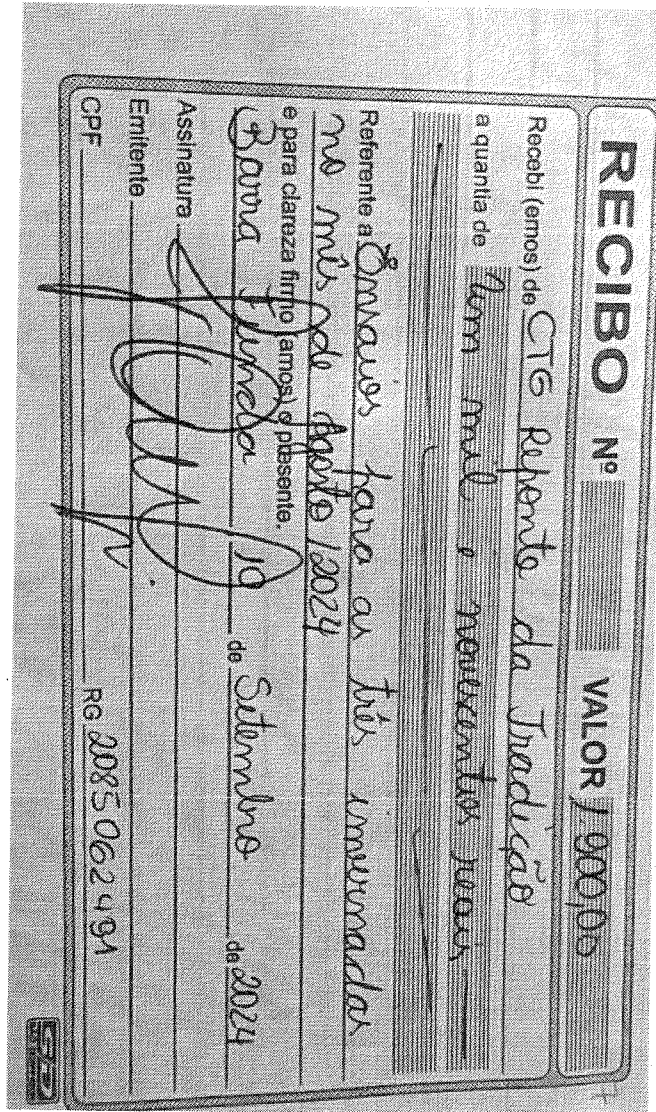 RECIBO Nº VALOR 1.900,00
Recebi (emos) de CTG Reponte da Tradição
a quantia de Um mil e novecentos reais
Referente a Ensaios para as três invernadas
no mês de Agosto/2024
e para clareza firmo (amos) o presente.
Barra Funda 10 de Setembro de 2024
Assinatura
Emitente
CPF RG 2085062491